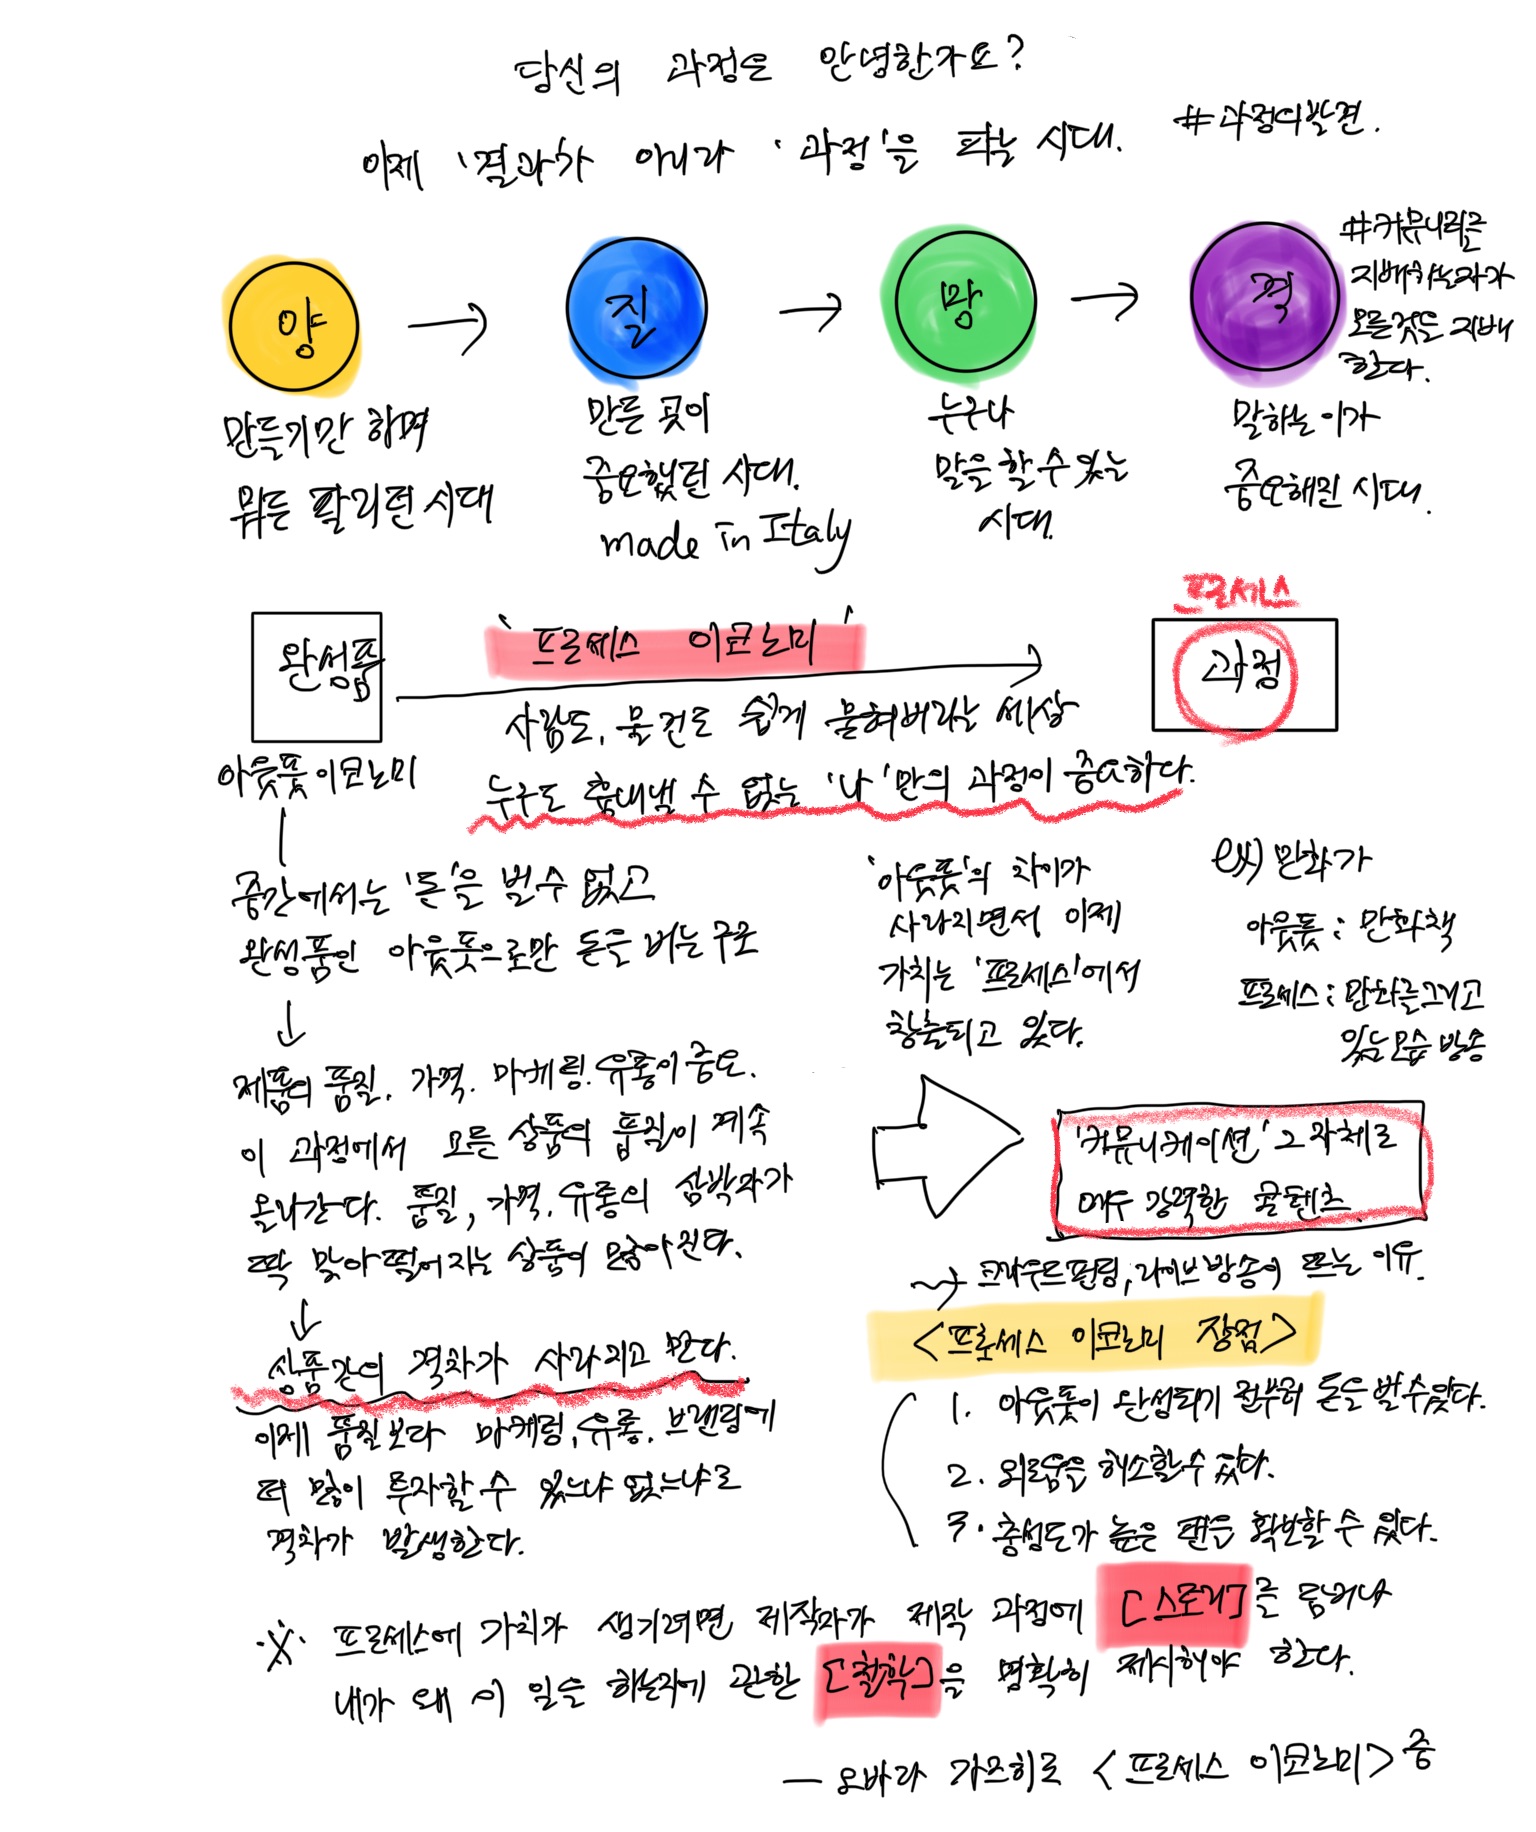 당신의 과정은 안녕한가요?
#과정의발견.
이제 '결과'가 아니라 '과정'을 파는 시대.
양
만들기만 하면
뭐든 팔리던 시대
질
만든 곳이
중요했던 시대.
made in Italy
망
누구나
말을 할 수 있는
시대.
격
말하는 이가
중요해진 시대.
#커뮤니티를
지배하는자가
모든것을 지배
한다.
완성품
아웃풋이코노미
'프로세스 이코노미'
사람도, 물건도 쉽게 묻혀버리는 세상
누구도 흉내낼 수 없는 '나'만의 과정이 중요하다.
프로세스
과정
중간에서는 '돈'을 벌 수 없고
완성품인 아웃풋으로만 돈을 버는 구조
제품의 품질. 가격. 마케팅. 유통이 중요.
이 과정에서 모든 상품의 품질이 계속
올라간다. 품질, 가격. 유통의 삼박자가
딱 맞아떨어지는 상품이 많아진다.
상품간의 격차가 사라지고 만다.
이제 품질보다 마케팅, 유통. 브랜딩에
더 많이 투자할 수 있느냐 없느냐로
격차가 발생한다.
'아웃풋'의 차이가
사라지면서 이제
가치는 '프로세스'에서
창출되고 있다.
ex) 만화가
아웃풋 : 만화책
프로세스 : 만화를그리고
있는모습 방송
'커뮤니케이션' 그 자체로
매우 강력한 콘텐츠
크라우드펀딩, 라이브방송이 뜨는 이유.
<프로세스 이코노미 장점>
1. 아웃풋이 완성되기 전부터 돈을 벌 수 있다.
2. 외로움을 해소할 수 있다.
3. 충성도가 높은 팬을 확보할 수 있다.
※ 프로세스에 가치가 생기려면 제작자가 제작 과정에 [스토리]를 담거나
내가 왜 이 일을 하는지에 관한 [철학]을 명확히 제시해야 한다.
— 오바라 가즈히로 <프로세스 이코노미> 중